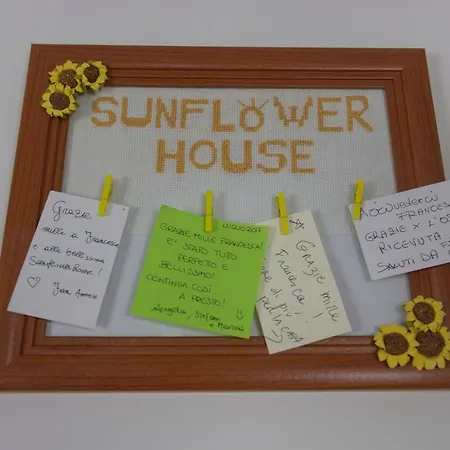 SUNFLOWER
HOUSE
Grazie
mille a Francesca
e alla bellissima
Sunflower House!
LUGLIO 2017
GRAZIE MILLE FRANCESCA!
E' STATO TUTTO
PERFETTO E
BELLISSIMO!
CONTINUA COSÌ...
A PRESTO!
Angela, Stefano
e Martina
Grazie mille
Francesca!
di più
FRANCES
GRAZIE X L'OS
RICEVUTA.
SALUTI DA